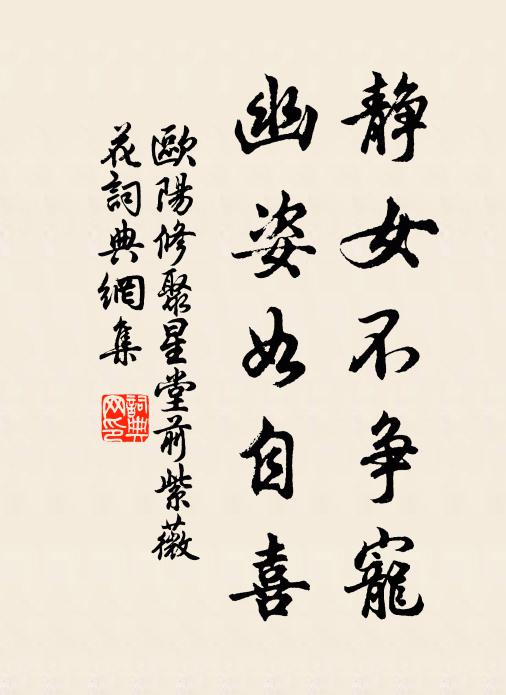 靜女不争寵
幽姿如自喜
歐陽修聚星堂前紫薇
花詞典網集
詞典
网印